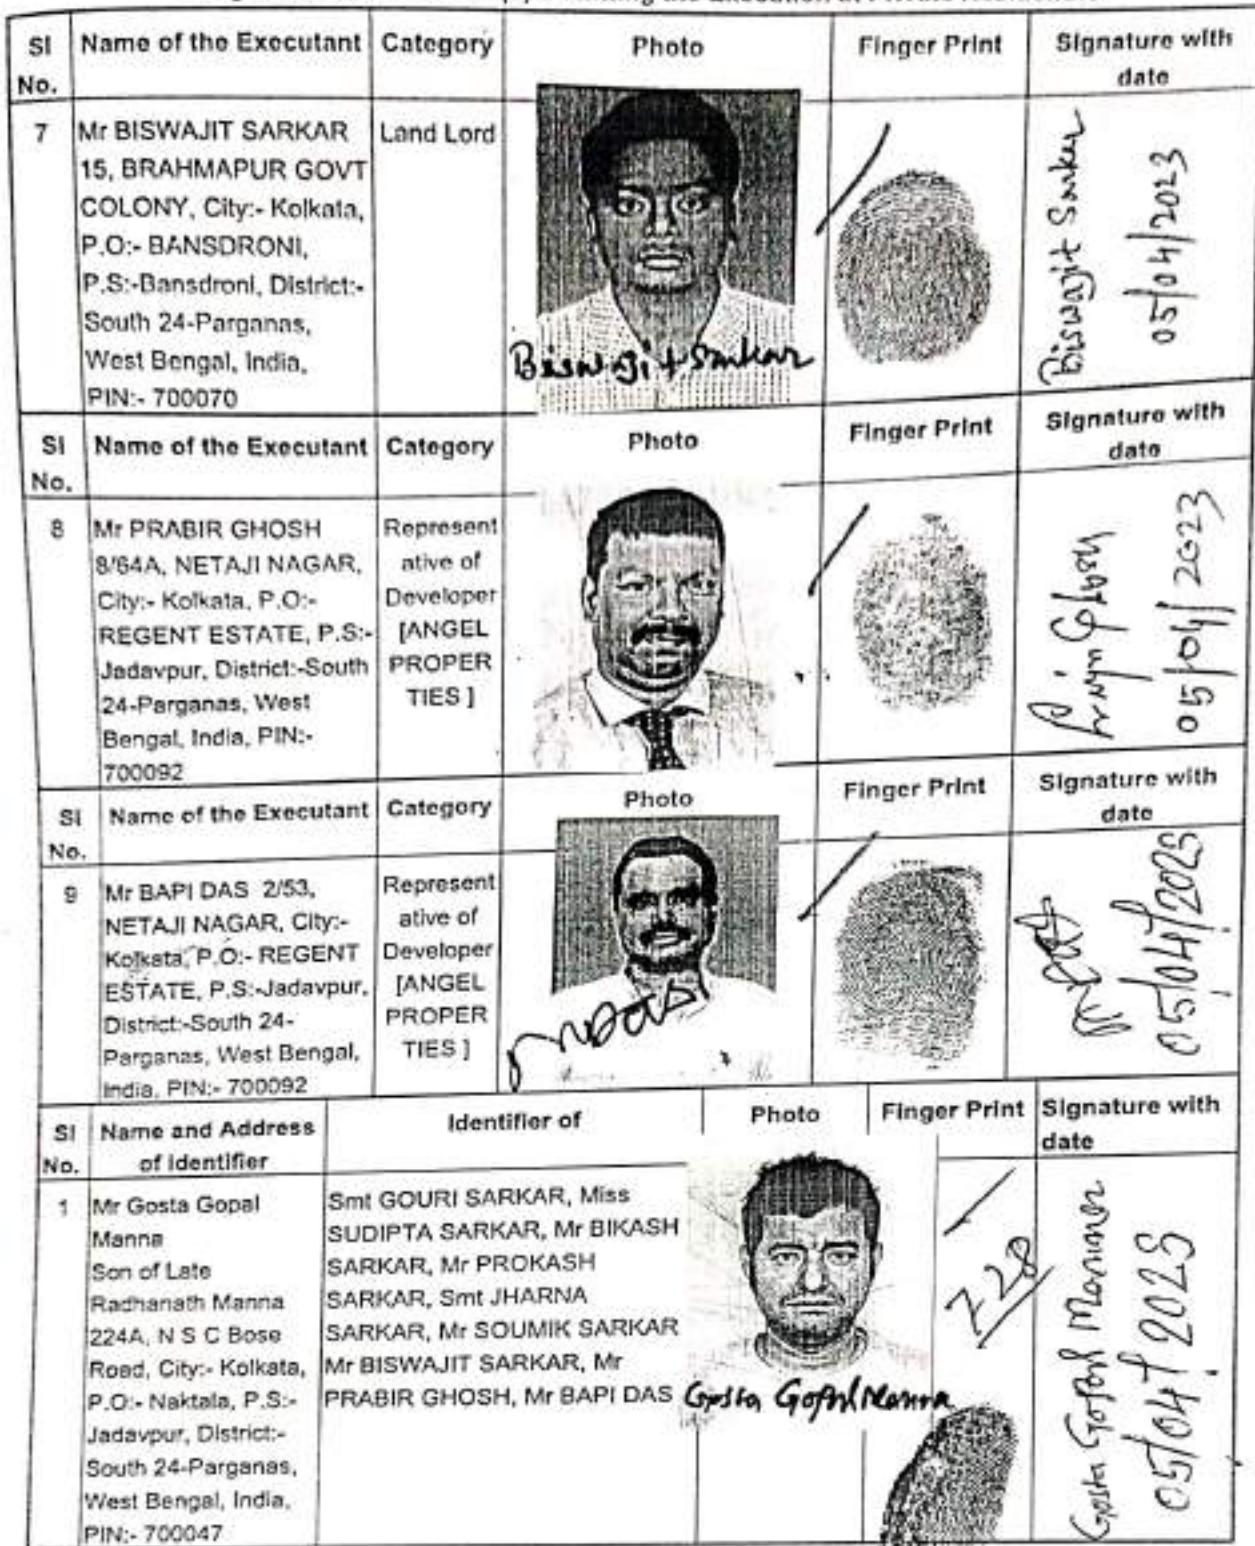 Sl No.
Name of the Executant
Category
Photo
Finger Print
Signature with date
7
Mr BISWAJIT SARKAR
15, BRAHMAPUR GOVT
COLONY, City:- Kolkata,
P.O:- BANSDRONI,
P.S:-Bansdroni, District:-
South 24-Parganas,
West Bengal, India,
PIN:- 700070
Land Lord
Biswajit Sarkar
Biswajit Sarkar
05/04/2023
Sl No.
Name of the Executant
Category
Photo
Finger Print
Signature with date
8
Mr PRABIR GHOSH
8/64A, NETAJI NAGAR,
City:- Kolkata, P.O:-
REGENT ESTATE, P.S:-
Jadavpur, District:-South
24-Parganas, West
Bengal, India, PIN:-
700092
Represent
ative of
Developer
[ANGEL
PROPER
TIES ]
05/04/2023
Sl No.
Name of the Executant
Category
Photo
Finger Print
Signature with date
9
Mr BAPI DAS 2/53,
NETAJI NAGAR, City:-
Kolkata, P.O:- REGENT
ESTATE, P.S:-Jadavpur,
District:-South 24-
Parganas, West Bengal,
India, PIN:- 700092
Represent
ative of
Developer
[ANGEL
PROPER
TIES ]
05/04/2023
Sl No.
Name and Address
of identifier
Identifier of
Photo
Finger Print
Signature with date
1
Mr Gosta Gopal
Manna
Son of Late
Radhanath Manna
224A, N S C Bose
Road, City:- Kolkata,
P.O:- Naktala, P.S:-
Jadavpur, District:-
South 24-Parganas,
West Bengal, India,
PIN:- 700047
Smt GOURI SARKAR, Miss
SUDIPTA SARKAR, Mr BIKASH
SARKAR, Mr PROKASH
SARKAR, Smt JHARNA
SARKAR, Mr SOUMIK SARKAR
Mr BISWAJIT SARKAR, Mr
PRABIR GHOSH, Mr BAPI DAS
Gosta Gopal Manna
228
Gosta Gopal Manna
05/04/2023